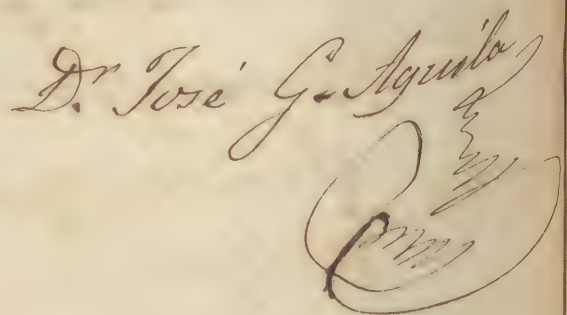 Dr. José G. Aguila